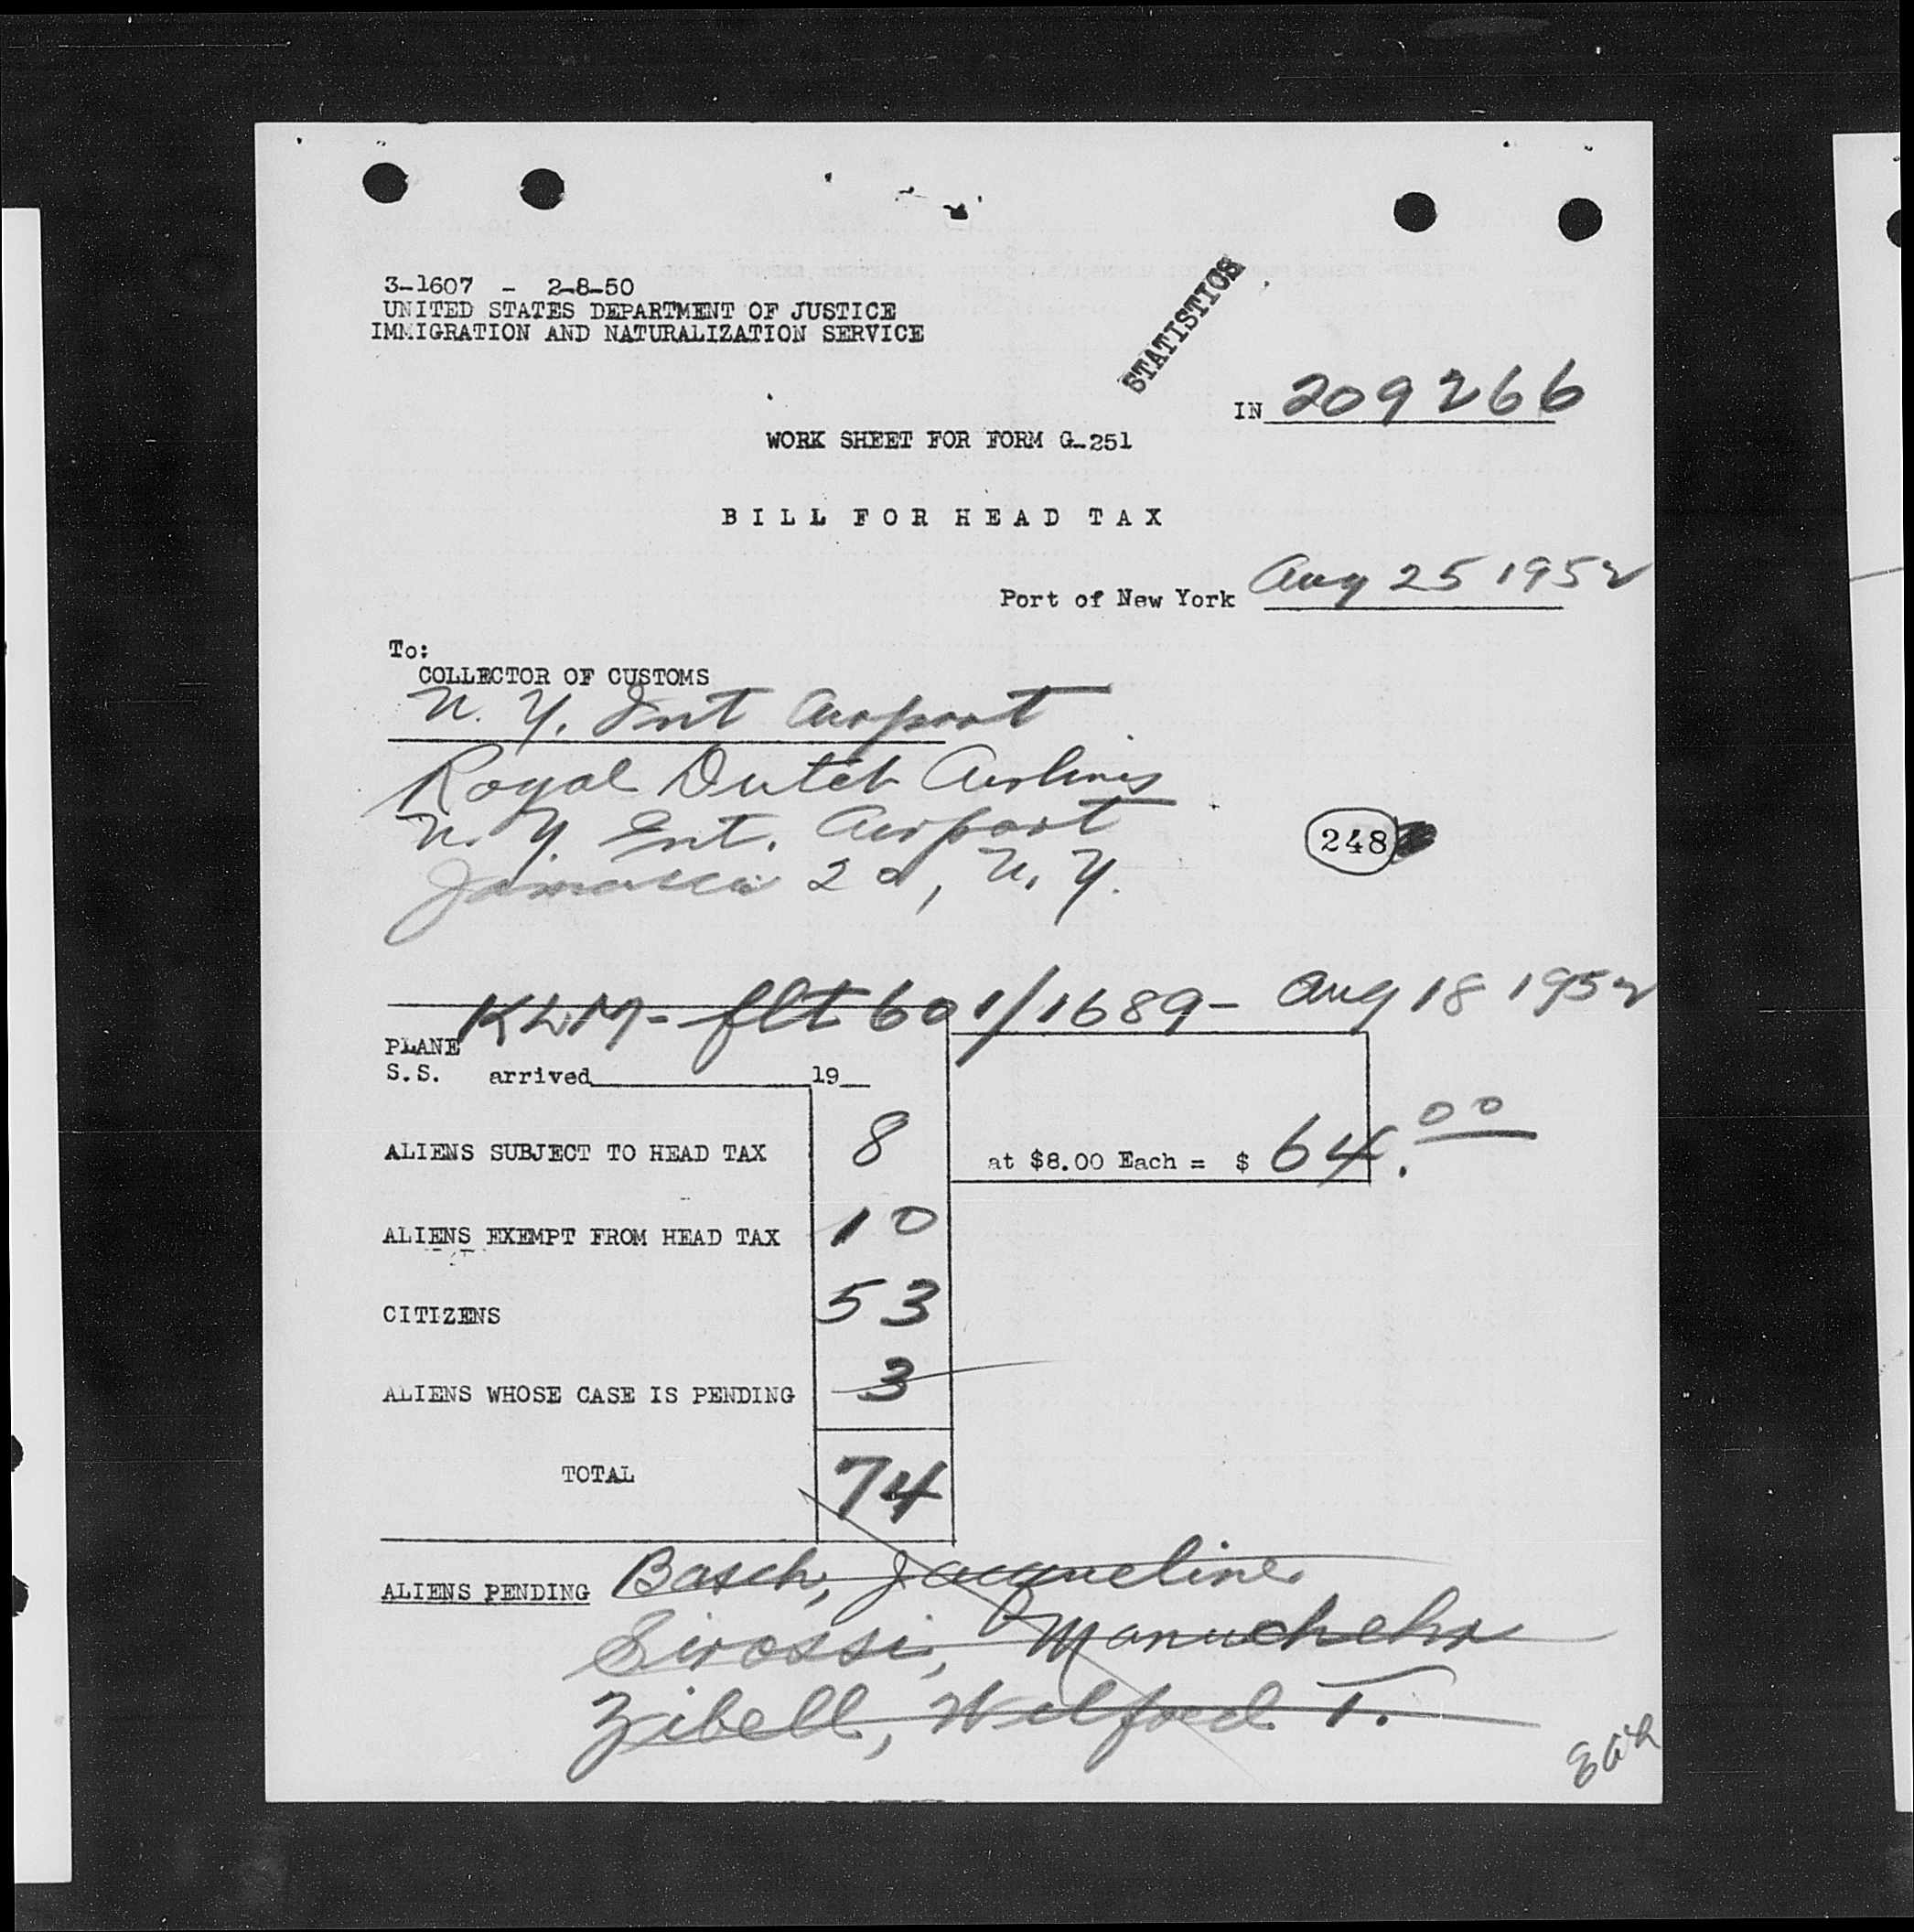 3-1607 - 2-8-50
UNITED STATES DEPARTMENT OF JUSTICE
IMMIGRATION AND NATURALIZATION SERVICE
STATISTICS
IN 209266
WORK SHEET FOR FORM G-251
BILL FOR HEAD TAX
Port of New York Aug 25 1952
To:
COLLECTOR OF CUSTOMS
N. Y. Int Airport
Royal Dutch Airlines
N. Y. Int. Airport
Jamaica 20, N. Y.
248
KLM - flt 601/1689 - Aug 18 1952
PLANE
S.S. arrived 19
ALIENS SUBJECT TO HEAD TAX 8 at $8.00 Each = $ 64.00
ALIENS EXEMPT FROM HEAD TAX 10
CITIZENS 53
ALIENS WHOSE CASE IS PENDING 3
TOTAL 74
ALIENS PENDING Basch, Jacqueline
Sirossi, Manuchehr
Zibell, Wilford T.